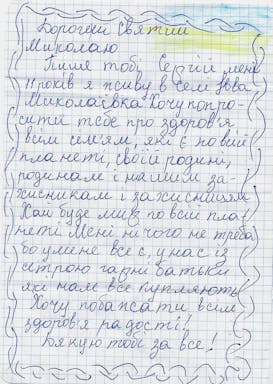 Дорогий Святий
Миколаю
Пише тобі Сергій мені
11 років я живу в селі Нова
Миколаївка Хочу попро-
сити тебе про здоров'я
всім сем'ям, які є по всій
планети, своїй родині,
родинам і нашим за-
хисникам і захисницям
Хай буде мир по всій пла-
нети Мені нічого не треба
бо у мене все є, у нас із
сестрою гарні батьки
які нам все купляють
Хочу побажати всім
здоров'я радості!
Дякую тобі за все!